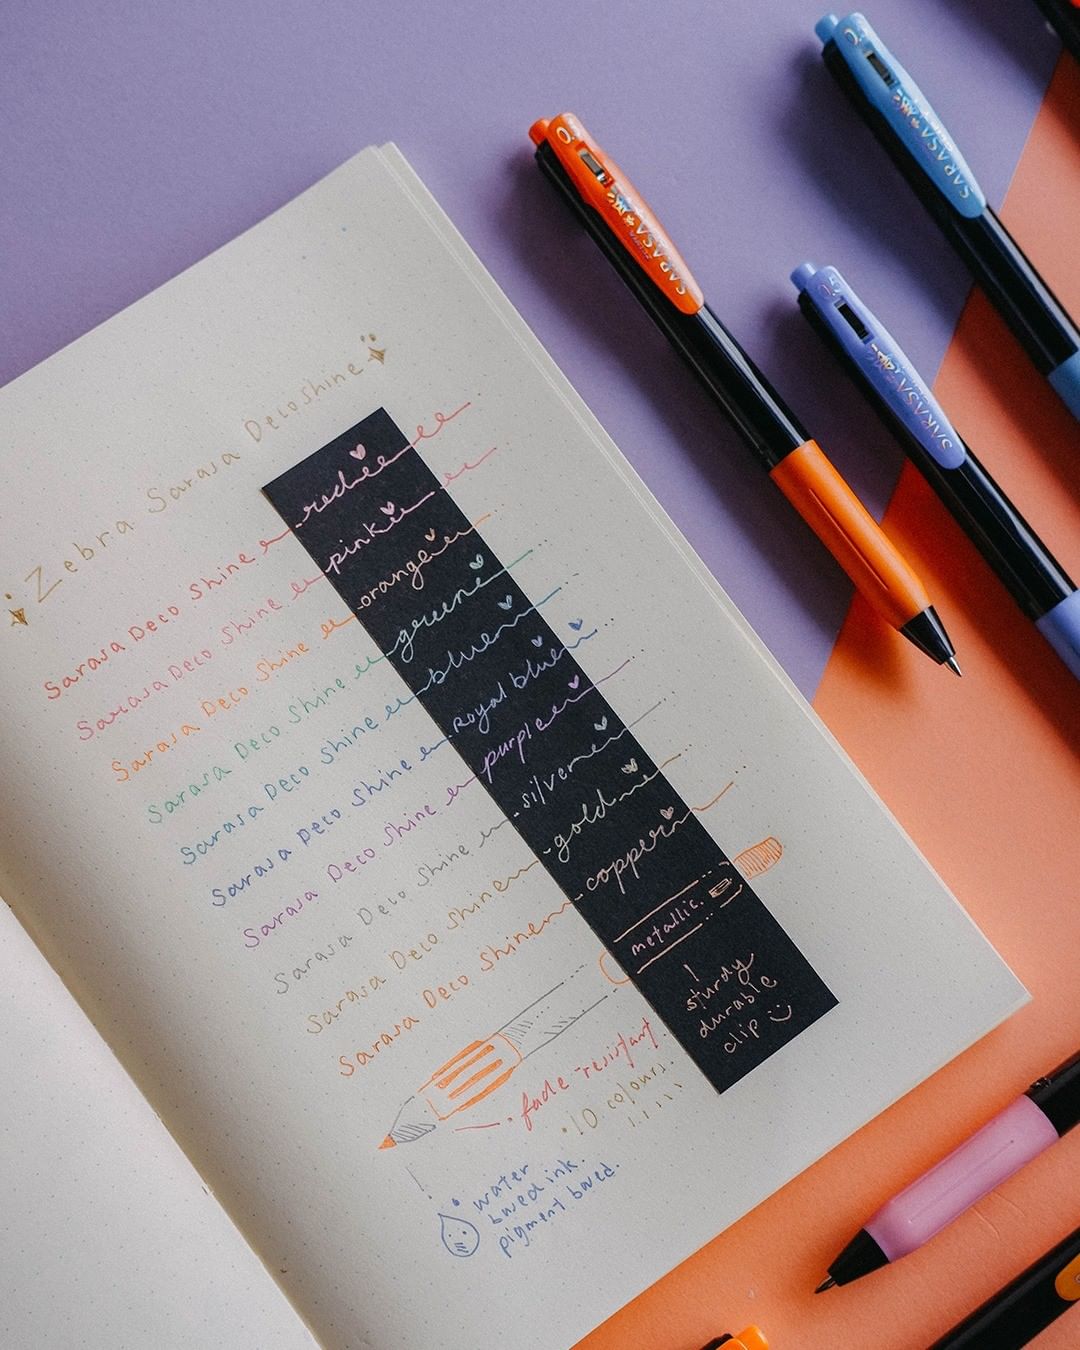 Zebra Sarasa Decoshine
Sarasa Deco Shine red
Sarasa Deco Shine pink
Sarasa Deco Shine orange
Sarasa Deco Shine green
Sarasa Deco Shine blue
Sarasa Deco Shine Royal blue
Sarasa Deco Shine purple
Sarasa Deco Shine silver
Sarasa Deco Shine gold
Sarasa Deco Shine copper
metallic.
sturdy
durable
clip
fade-resistant.
10 colours.
water
based ink.
pigment based.
SARASA
SARASA
SARASA